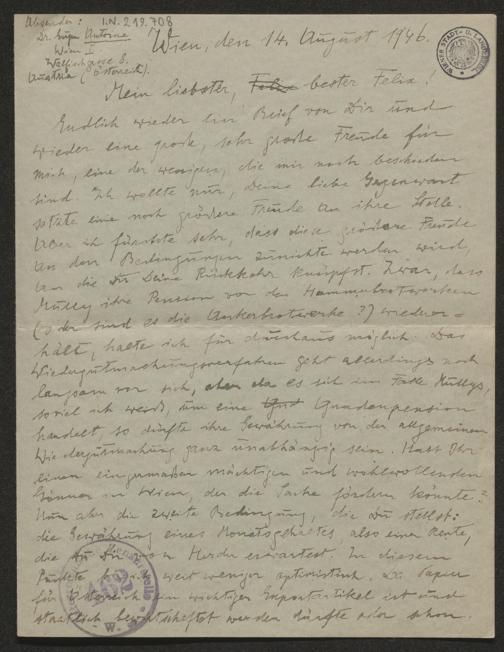 Absender: I.N. 219.708
Dr. Eugen Antoine
Wien I
Walfischgasse 8.
Austria (Österreich).
WIENER STADT- U. LANDESBIBL.
Wien, den 14. August 1946.
Mein liebster, Felix bester Felix!
Endlich wieder ein Brief von Dir und
wieder eine große, sehr große Freude für
mich, eine der wenigen, die mir noch beschieden
sind. Ich wollte nur, Deine liebe Gegenwart
setzte eine noch größere Freude an ihre Stelle.
Aber ich fürchte sehr, dass diese größere Freude
an den Bedingungen zunichte werden wird,
an die Du Deine Rückkehr knüpfst. Zwar, dass
Mully ihre Pension von den Hammerbrotwerken
(oder sind es die Ankerbrotwerke?) wieder=
hält, halte ich für durchaus möglich. Das
Wiedergutmachungsverfahren geht allerdings noch
langsam vor sich, aber da es sich im Falle Mullys,
soviel ich weiß, um eine Gnadenpension
handelt so dürfte ihre Gewährung von der allgemeinen
Wiedergutmachung ganz unabhängig sein. Hast Du
einen einigermaßen mächtigen und wohlwollenden
Gönner in Wien, der die Sache fördern könnte?
Nun aber die zweite Bedingung, die Du stellst:
die Gewährung eines Monatsgehaltes, also einer Rente,
die Du von erwartest. In diesem
Punkte bin ich weit weniger optimistisch. Da Papier
für Österreich ein wichtiger Exportartikel ist und
staatlich bewirtschaftet werden dürfte oder schon